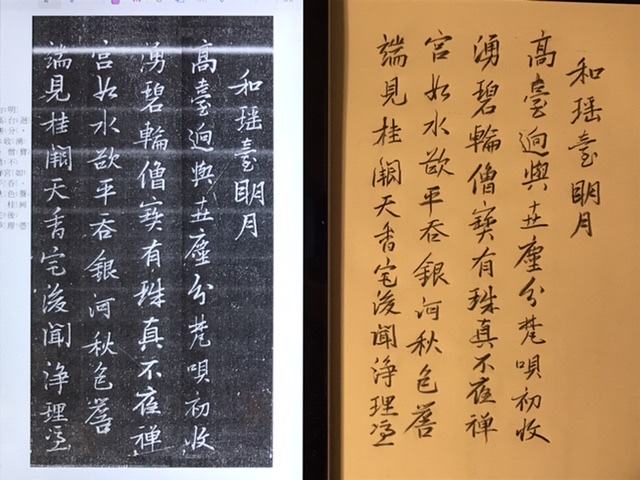 和瑶臺眀月
高臺迥與世塵分梵唄初收
湧碧輪僧寶有珠真不夜禅
宮如水欲平吞銀河秋色簷
端見桂闕天香定後聞淨理憑
和瑶臺眀月
高臺迥與世塵分梵唄初收
湧碧輪僧寶有珠真不夜禅
宮如水欲平吞銀河秋色簷
端見桂闕天香定後聞淨理憑